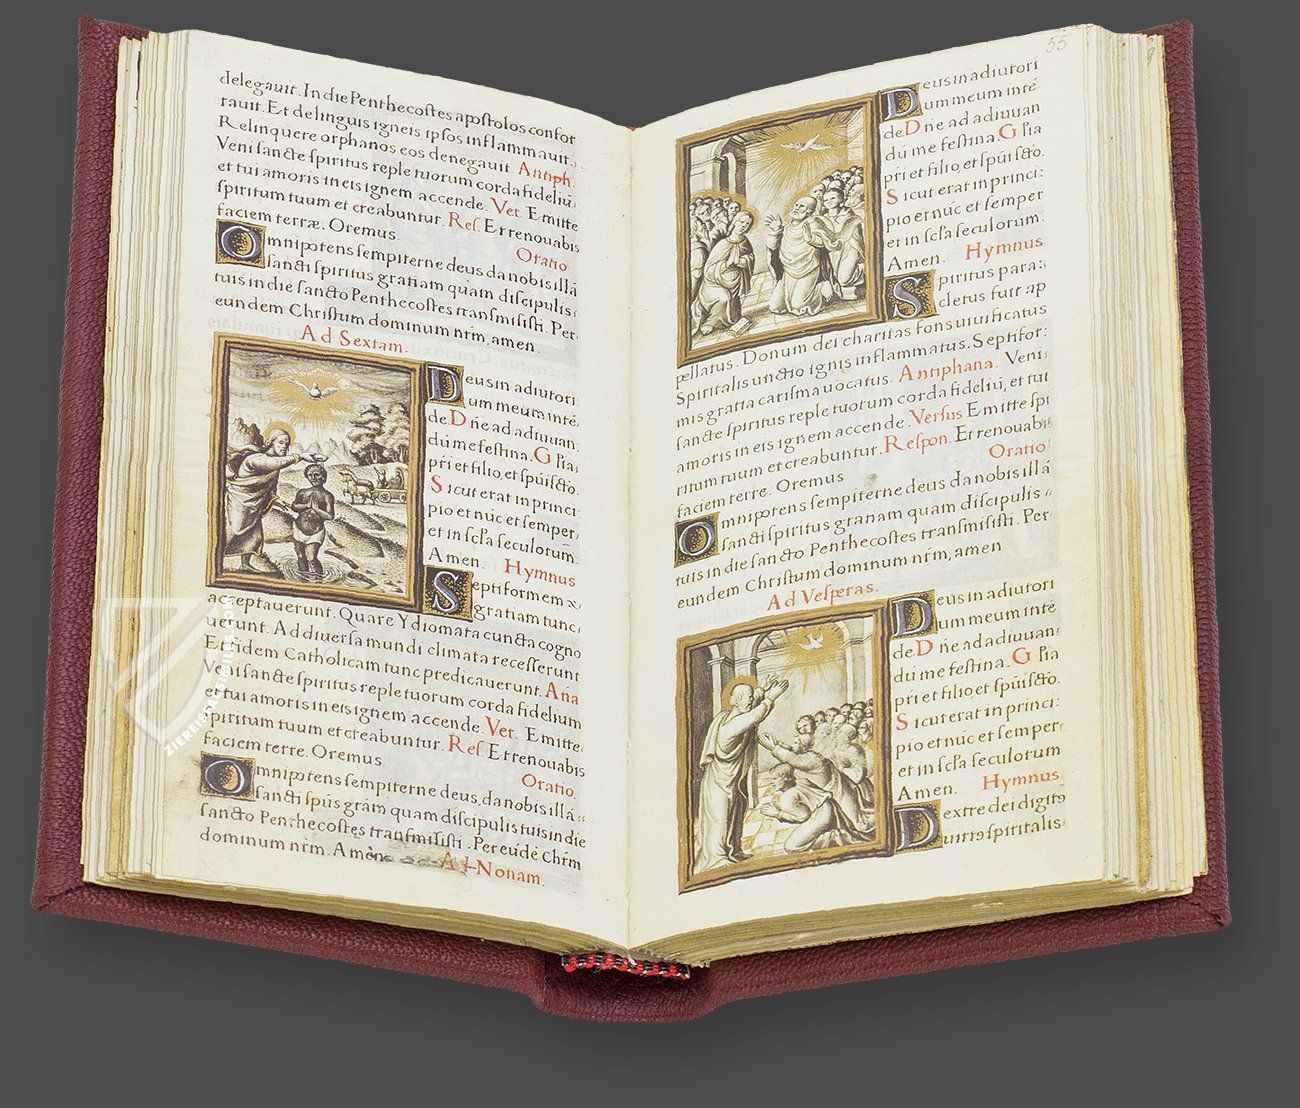 delegauit. In die Penthecostes apostolos confor
tauit. Et de linguis igneis ipsos inflammauit.
Relinquere orphanos eos denegauit. Antiph.
Veni sancte spiritus reple tuorum corda fideliũ
et tui amoris in eis ignem accende. Ver. Emitte
spiritum tuum et creabuntur. Res. Et renouabis
faciem terræ. Oremus. Oratio
Omnipotens sempiterne deus da nobis illã
sancti spiritus gratiam quàm discipulis
tuis in die sancto Penthecostes transmisisti. Per
eundem Christum dominum nr̃m, amen.
Ad Sextam.
Deus in adiutori
um meum intẽ
de. Dñe ad adiuuan:
dũ me festina. Glia
pr̃i et filio, et spũi scto.
Sicut erat in princi
pio et nũc et semper
et in scl̃a seculorum
Amen. Hymnus
Septiformem
gratiam tunc
acceptauerunt. Quare Ydiomata cuncta cogno
uerunt. Ad diuersa mundi climata recesserunt
Et fidem Catholicam tunc predicauerunt. Aña
Veni sancte spiritus reple tuorum corda fidelium
et tui amoris in eis ignem accende. Ver. Emitte
spiritum tuum et creabuntur. Res Et renouabis
faciem terre. Oremus Oratio.
Omnipotens sempiterne deus, da nobis illã
sancti spũs grãm quam discipulis tuis in die
sancto Penthecostes transmisisti. Per eũdẽ Chr̃m
dominum nr̃m. Amèn.
Ad Nonam.
55
Deus in adiutori
um meum intẽ
de Dñe ad adiuuan
dũ me festina. Glia
pr̃i et filio, et spũi scto.
Sicut erat in princi:
pio et nũc et semper
et in scl̃a seculorum.
Amen. Hymnus
Spiritus para:
cletus fuit ap
pellatus. Donum dei charitas fons uiuificatus
Spiritalis unctio ignis inflammatus. Septifor:
mis gratia carisma uocatus. Antiphana. Veni
sancte spiritus reple tuorum corda fideliũ, et tui
amoris in eis ignem accende. Versus Emitte spi
ritum tuum et creabuntur. Respon. Et renouabis
faciem terre. Oremus Oratio
Omnipotens sempiterne deus da nobis illã
sancti spiritus gratiam quam discipulis
tuis in die sancto Penthecostes transmisisti. Per
eundem Christum dominum nr̃m, amen
Ad Vesperas.
Deus in adiutori
um meum intẽ
de. Dñe ad adiuuan
dũ me festina. Glia
pr̃i et filio et spũi scto.
Sicut erat in princi:
pio et nũc et semper
et in scl̃a seculorum
Amen. Hymnus
Dextre dei digito
uirtus spiritalis
ZIEREIS FACSIMILES.COM